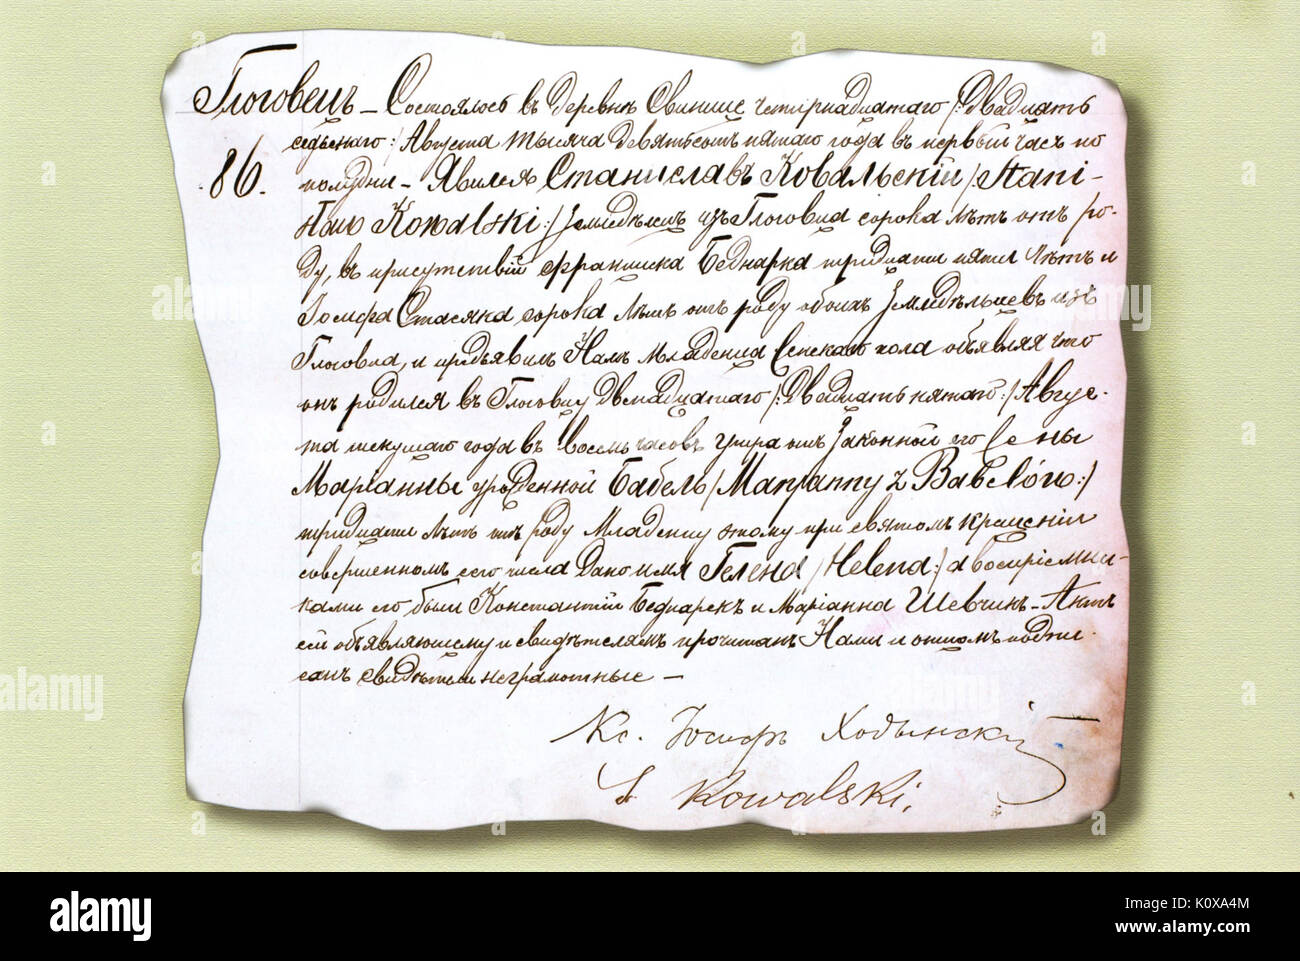 Глоговецъ – Состоялось въ деревнѣ Свинице четырнадцатаго /: двадцать
седьмаго :/ Августа тысяча девятьсотъ пятаго года въ первый часъ по
86. полудни – Явился Станиславъ Ковальскій /: Stani-
sław Kowalski :/ Земледѣлецъ изъ Глоговца сорока лѣтъ отъ ро-
ду, въ присутствіи Франциска Беднарка тридцати пяти лѣтъ и
Іосифа Стасяка сорока лѣтъ отъ роду обоихъ Земледѣльцевъ изъ
Глоговца, и предъявилъ Намъ Младенца женскаго пола объявляя что
онъ родился въ Глоговцу двенадцатаго /: двадцать пятаго :/ Авгус-
та текущаго года въ восемь часовъ утра отъ Законной его Жены
Маріанны урожденной Бабель /: Maryanny z Babelów :/
тридцати лѣтъ отъ роду Младенцу этому при святомъ крещеніи
совершенномъ сего числа дано имя Гелена /: Helena :/ а воспріемни-
ками его были Константій Беднарекъ и Маріанна Шевчикъ – Актъ
сей объявляющему и свидѣтелямъ прочитанъ Нами и отцомъ подпи-
санъ Свидѣтели неграмотные –
Кс. Іосифъ Ходынскій
S Kowalski.
alamy
Image ID: K0XA4M
www.alamy.com